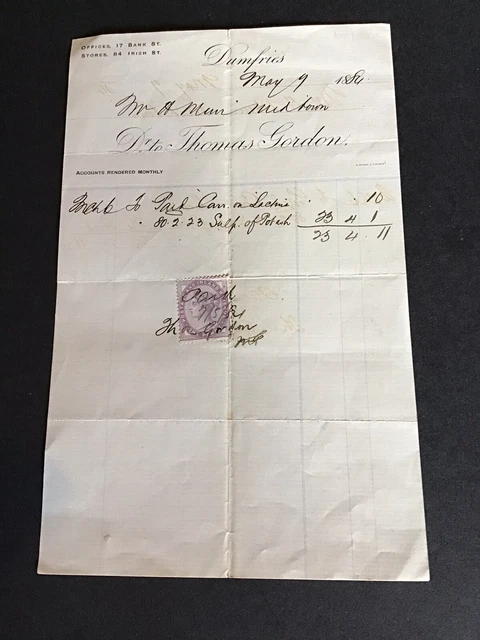 OFFICES, 17 BANK ST.
STORES, 84 IRISH ST.
Dumfries
May 9 1884
Mr A Muir Midtown
Dr. to Thomas Gordon.
ACCOUNTS RENDERED MONTHLY
To Paid Carr. on 10
80.2.23 Sulp. of Potash 23 4 1
23 4 11
Paid
9/5/84
Thos Gordon